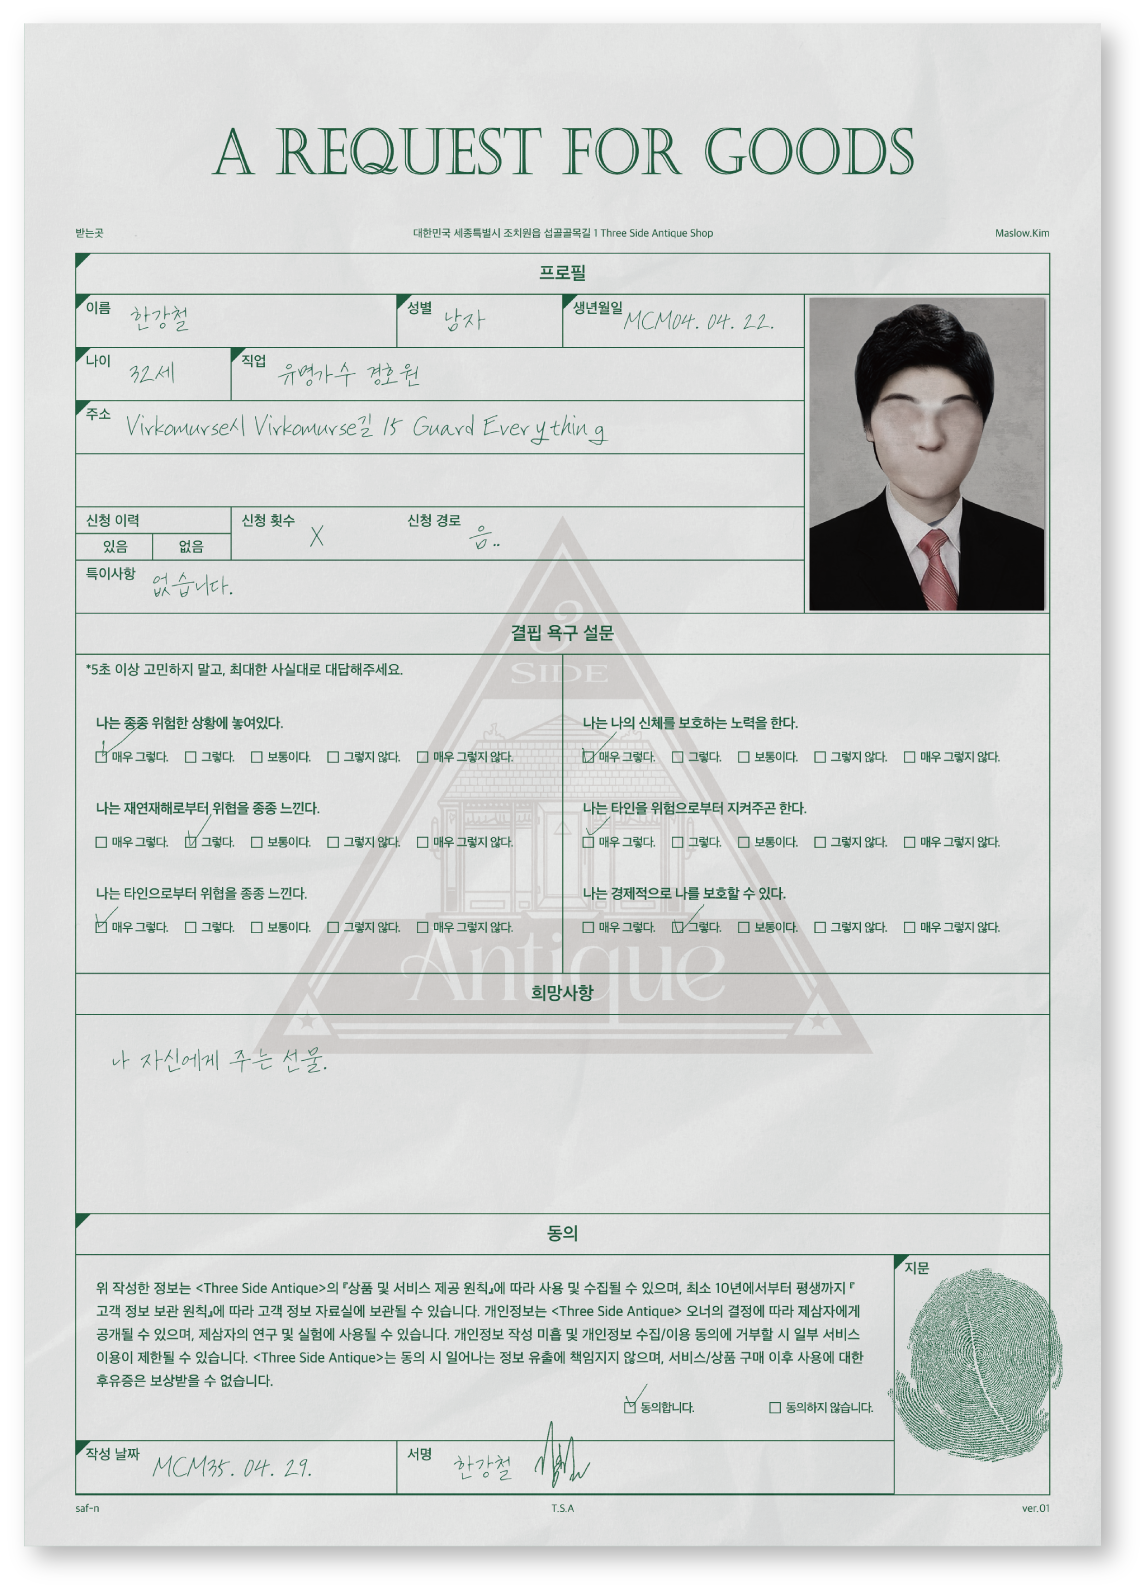 A REQUEST FOR GOODS
받는곳 대한민국 세종특별시 조치원읍 섭골골목길 1 Three Side Antique Shop Maslow.Kim
프로필
이름 한강철 성별 남자 생년월일 MCM04. 04. 22.
나이 32세 직업 유명가수 경호원
주소 Virkomurse시 Virkomurse길 15 Guard Everything
신청 이력 신청 횟수 X 신청 경로 음..
있음 없음
특이사항 없습니다.
3
결핍 욕구 설문
*5초 이상 고민하지 말고, 최대한 사실대로 대답해주세요.
SIDE
나는 종종 위험한 상황에 놓여있다. 나는 나의 신체를 보호하는 노력을 한다.
매우 그렇다. 그렇다. 보통이다. 그렇지 않다. 매우 그렇지 않다. 매우 그렇다. 그렇다. 보통이다. 그렇지 않다. 매우 그렇지 않다.
나는 재연재해로부터 위협을 종종 느낀다. 나는 타인을 위험으로부터 지켜주곤 한다.
매우 그렇다. 그렇다. 보통이다. 그렇지 않다. 매우 그렇지 않다. 매우 그렇다. 그렇다. 보통이다. 그렇지 않다. 매우 그렇지 않다.
나는 타인으로부터 위협을 종종 느낀다. 나는 경제적으로 나를 보호할 수 있다.
매우 그렇다. 그렇다. 보통이다. 그렇지 않다. 매우 그렇지 않다. 매우 그렇다. 그렇다. 보통이다. 그렇지 않다. 매우 그렇지 않다.
Antique
희망사항
나 자신에게 주는 선물.
동의
위 작성한 정보는 <Three Side Antique>의 『상품 및 서비스 제공 원칙』에 따라 사용 및 수집될 수 있으며, 최소 10년에서부터 평생까지 『
고객 정보 보관 원칙』에 따라 고객 정보 자료실에 보관될 수 있습니다. 개인정보는 <Three Side Antique> 오너의 결정에 따라 제삼자에게
공개될 수 있으며, 제삼자의 연구 및 실험에 사용될 수 있습니다. 개인정보 작성 미흡 및 개인정보 수집/이용 동의에 거부할 시 일부 서비스
이용이 제한될 수 있습니다. <Three Side Antique>는 동의 시 일어나는 정보 유출에 책임지지 않으며, 서비스/상품 구매 이후 사용에 대한
후유증은 보상받을 수 없습니다.
지문
동의합니다. 동의하지 않습니다.
작성 날짜 MCM35. 04. 29. 서명 한강철
saf-n T.S.A ver.01